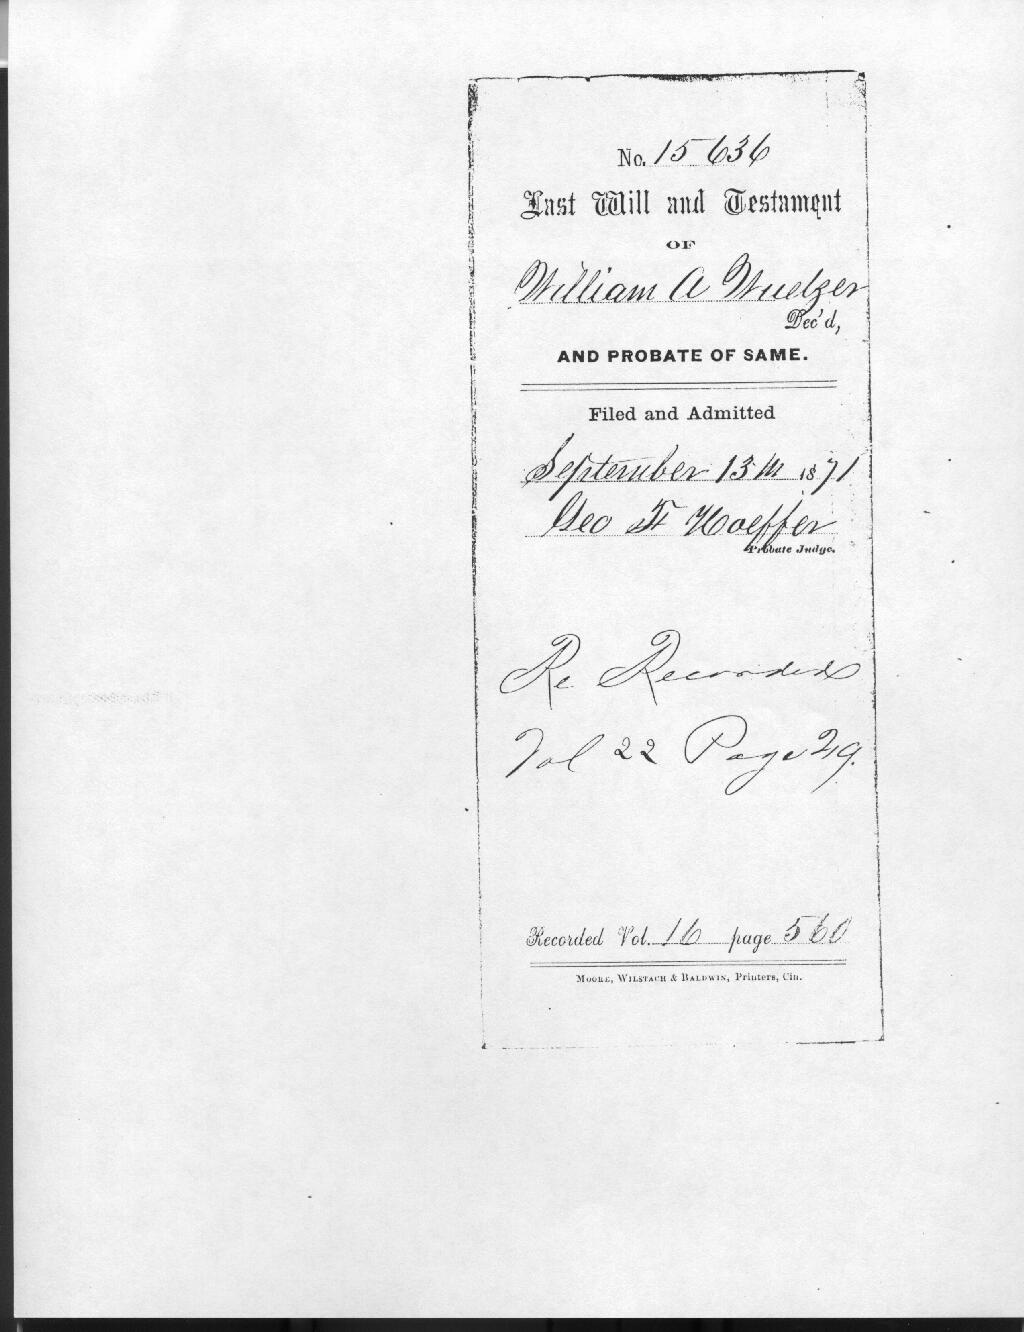 No. 15636
Last Will and Testament
OF
William A
Dec'd,
AND PROBATE OF SAME.
Filed and Admitted
September 13th 1871
Geo F Hoeffer
Probate Judge.
Re Recorded
Vol 22 Page 29.
Recorded Vol. 16 page 560
MOORE, WILSTACH & BALDWIN, Printers, Cin.